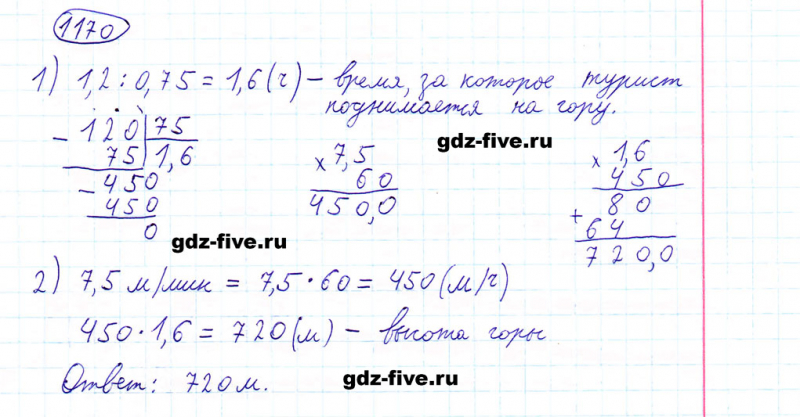 1170
1) 1,2 : 0,75 = 1,6 (ч) – время, за которое турист
поднимается на гору.
- 120 | 75
75 | 1,6
- 450
450
0
x 7,5
60
450,0
x 1,6
450
+ 80
64
720,0
gdz-five.ru
gdz-five.ru
2) 7,5 м/мин = 7,5 · 60 = 450 (м/ч)
450 · 1,6 = 720 (м) – высота горы
Ответ: 720 м.
gdz-five.ru